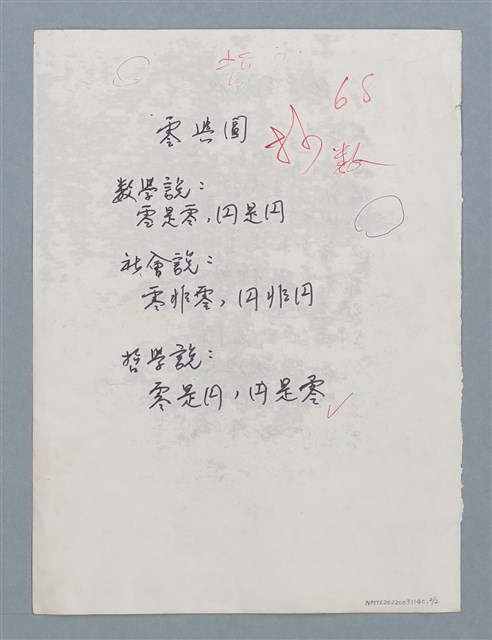 68
零與圓
抄
数
数學説：
零是零，円是円
社會説：
零非零，円非円
哲學説：
零是円，円是零
NMTL20220031140, 2/2